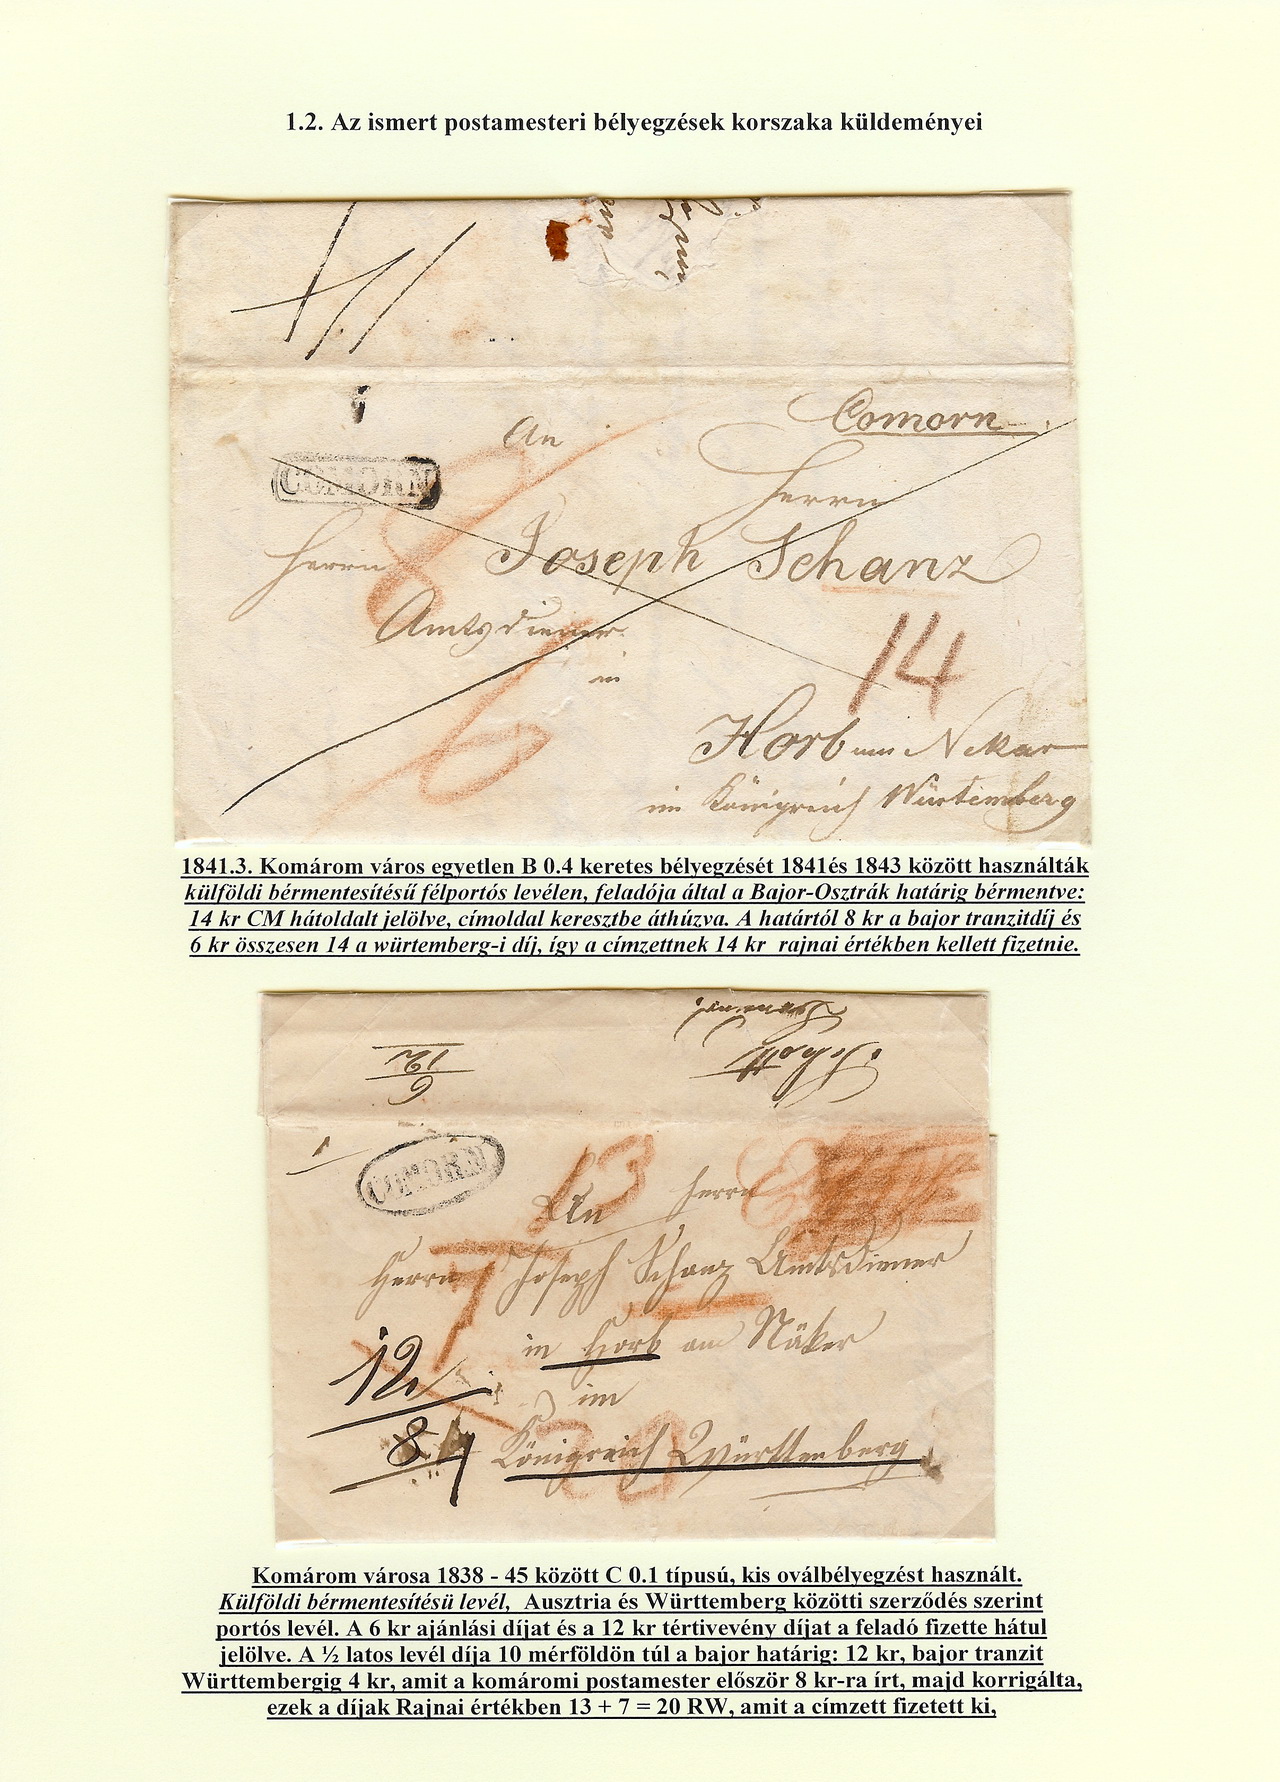 1.2. Az ismert postamesteri bélyegzések korszaka küldeményei
Comorn
An
COMORN
Herrn
8
Herrn Joseph Schanz
Amtsdiener
14
in
6
Horb am Nekar
im Königreich Würtemberg
1841.3. Komárom város egyetlen B 0.4 keretes bélyegzését 1841és 1843 között használták
külföldi bérmentesítésű félportós levélen, feladója által a Bajor-Osztrák határig bérmentve:
14 kr CM hátoldalt jelölve, címoldal keresztbe áthúzva. A határtól 8 kr a bajor tranzitdíj és
6 kr összesen 14 a würtemberg-i díj, így a címzettnek 14 kr  rajnai értékben kellett fizetnie.
6
12
COMORN
13
An Herrn
7
Herrn Joseph Schanz Amtsdiener
in Horb am Näker
12
im
8 4
Königreich Württemberg
20
Komárom városa 1838 - 45 között C 0.1 típusú, kis oválbélyegzést használt.
Külföldi bérmentesítésü levél,  Ausztria és Württemberg közötti szerződés szerint
portós levél. A 6 kr ajánlási díjat és a 12 kr tértivevény díjat a feladó fizette hátul
jelölve. A ½ latos levél díja 10 mérföldön túl a bajor határig: 12 kr, bajor tranzit
Württembergig 4 kr, amit a komáromi postamester először 8 kr-ra írt, majd korrigálta,
ezek a díjak Rajnai értékben 13 + 7 = 20 RW, amit a címzett fizetett ki,